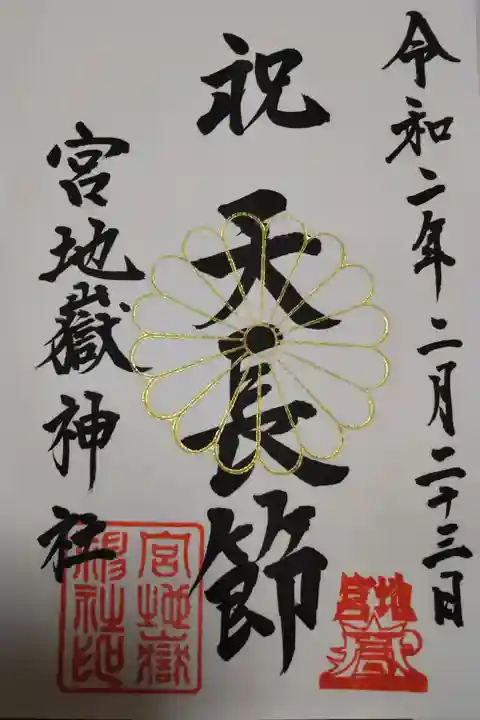 令和二年二月二十三日
祝 天長節
宮地嶽神社
宮地嶽
神社印